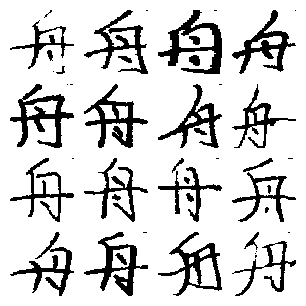 舟舟舟舟
舟舟舟舟
舟舟舟舟
舟舟舟舟